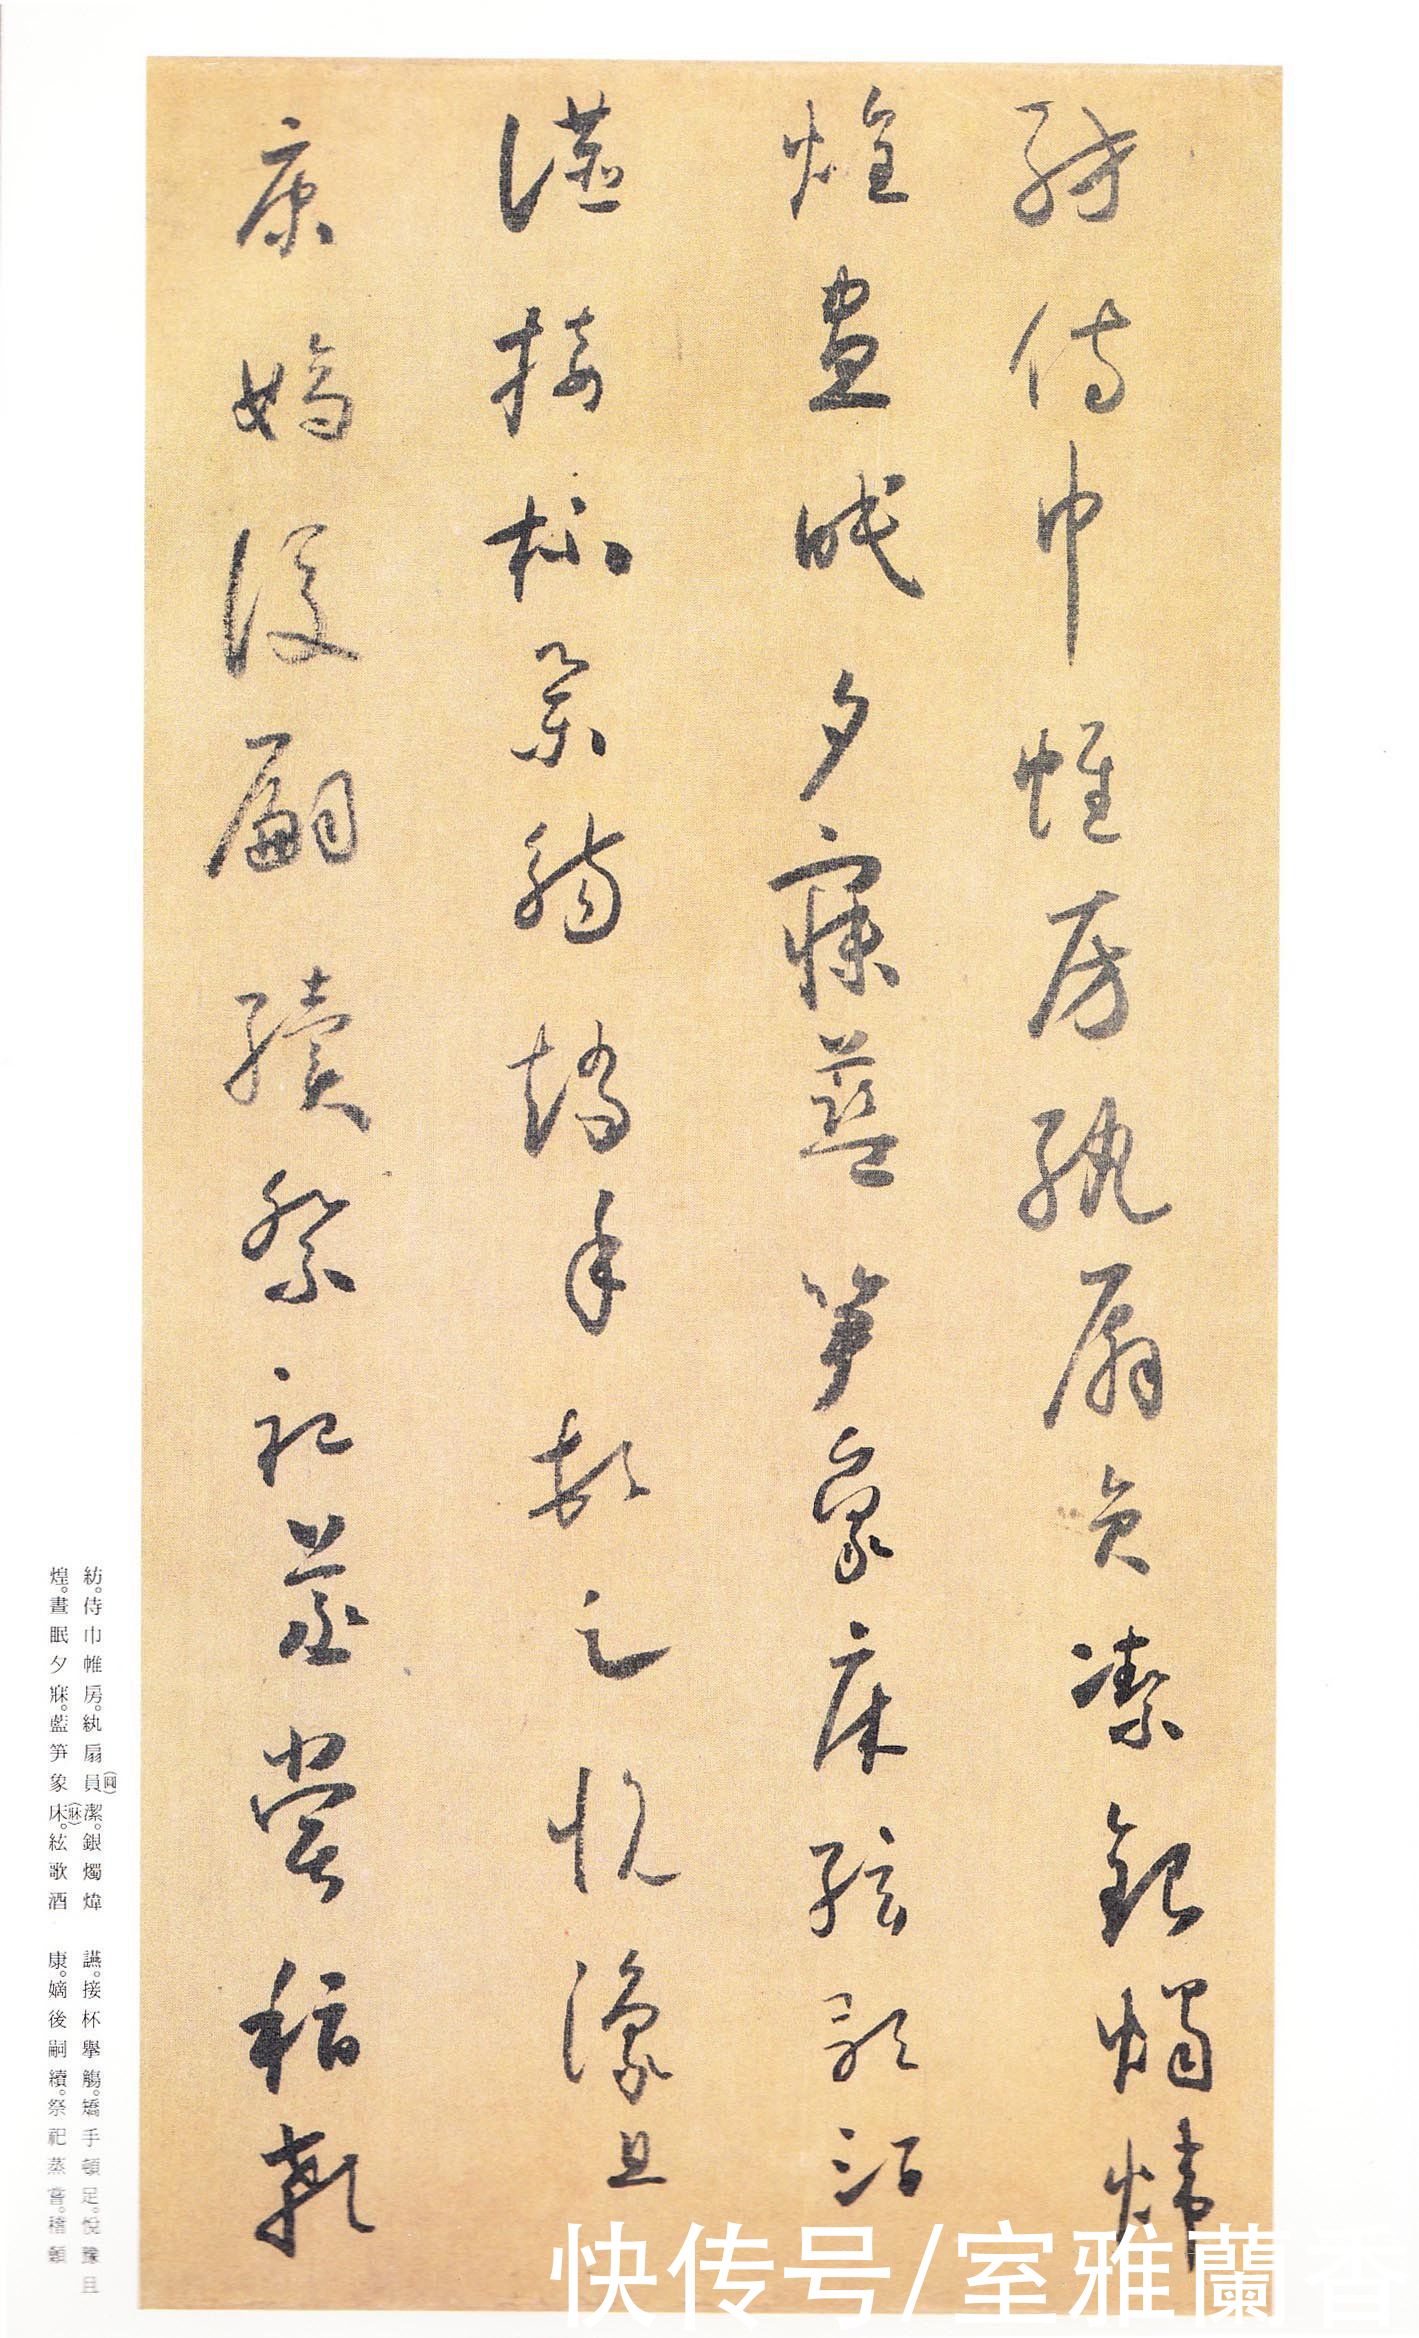 紡侍巾帷房紈扇員潔銀燭煒
煌晝眠夕寐藍笋象床絃歌酒
讌接杯舉觴矯手頓足悅豫且
康嫡後嗣續祭祀蒸嘗稽顙
紡。侍巾帷房。紈扇員(圓)潔。銀燭煒
煌。晝眠夕寐。藍笋象床(牀)。絃歌酒
讌。接杯舉觴。矯手頓足。悅豫且
康。嫡後嗣續。祭祀蒸嘗。稽顙
快传号/室雅蘭香